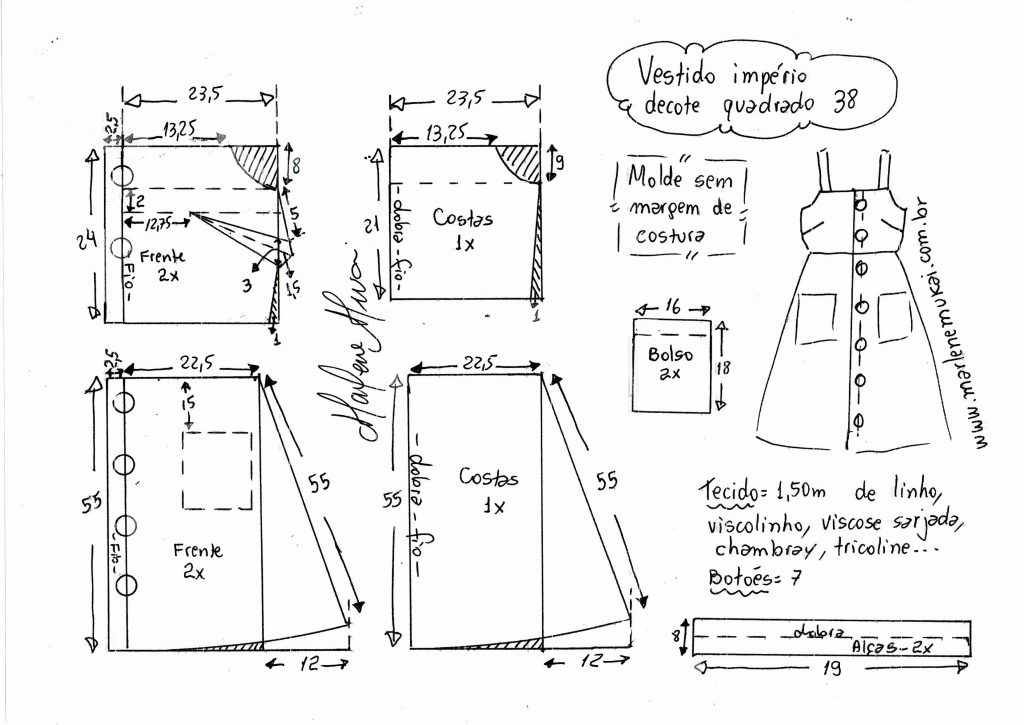 Vestido império
decote quadrado 38
23,5
2,5
13,25
8
24
2
12,75
5
Frente
2x
Fio
3
1,5
1
23,5
13,25
9
21
dobra - fio
Costas
1x
1
Molde sem
margem de
costura
16
Bolso
2x
18
www.marlenemukai.com.br
2,5
22,5
15
55
55
Frente
2x
Fio
12
22,5
55
dobra - fio
Costas
1x
55
12
Tecido= 1,50m de linho,
viscolinho, viscose sarjada,
chambray, tricoline...
Botões= 7
8
dobra
Alças - 2x
19